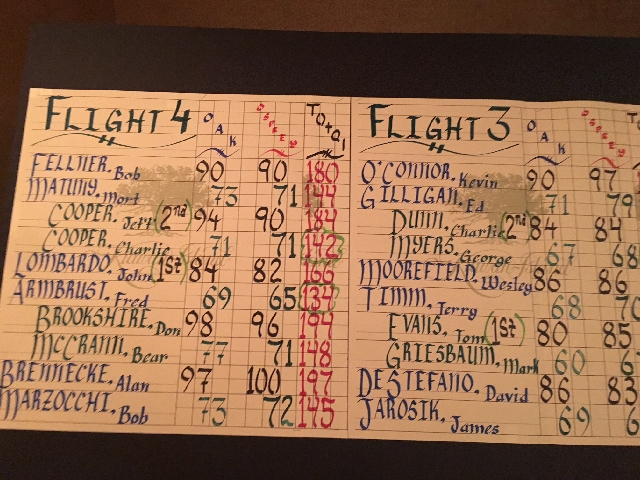 FLIGHT 4 OAK Total
FELLNER, Bob 90 90 180
MATUNY, Mort 73 71 144
COOPER, Jeff (2nd) 94 90 184
COOPER, Charlie 71 71 142
LOMBARDO, John (1st) 84 82 166
ARMBRUST, Fred 69 65 134
BROOKSHIRE, Don 98 96 194
McCRANN, Bear 77 71 148
BRENNECKE, Alan 97 100 197
MARZOCCHI, Bob 73 72 145
FLIGHT 3 OAK
O'CONNOR, Kevin 90 97
GILLIGAN, Ed 71 79
DUNN, Charlie (2nd) 84 84
MYERS, George 67 68
MOOREFIELD, Wesley 86 86
TIMM, Jerry 68
EVANS, Tom (1st) 80 85
GRIESBAUM, Mark 60
DESTEFANO, David 86 83
JAROSIK, James 69